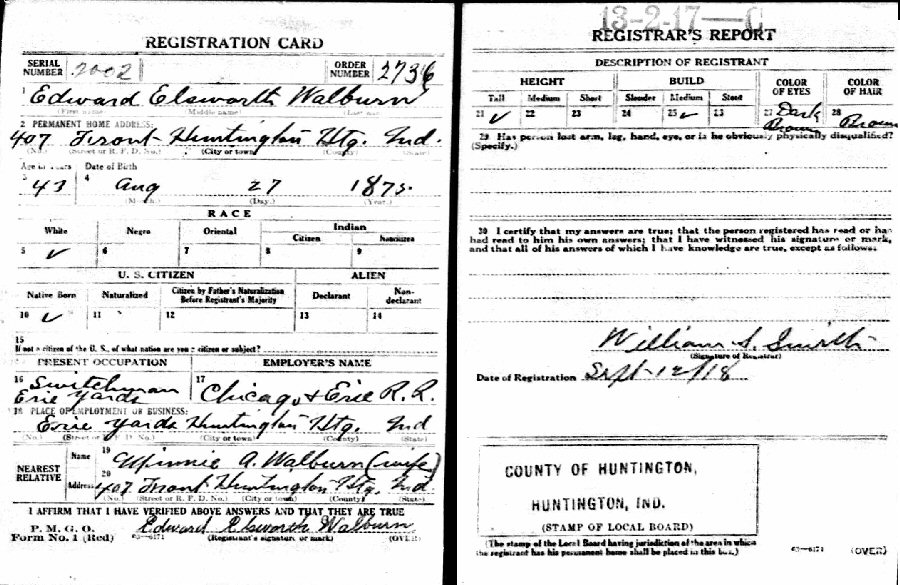 REGISTRATION CARD
SERIAL NUMBER 2002 ORDER NUMBER 2736
1 Edward Elsworth Walburn
(First name) (Middle name) (Last name)
2 PERMANENT HOME ADDRESS:
407 Front Huntington Htg. Ind.
(No.) (Street or R. F. D. No.) (City or town) (County) (State)
Age in Years Date of Birth
3 43 4 Aug 27 1875.
(Month.) (Day.) (Year.)
RACE
White Negro Oriental Indian
Citizen Noncitizen
5 ✓ 6 7 8 9
U. S. CITIZEN ALIEN
Native Born Naturalized Citizen by Father's Naturalization Before Registrant's Majority Declarant Non-declarant
10 ✓ 11 12 13 14
15
If not a citizen of the U. S., of what nation are you a citizen or subject?
PRESENT OCCUPATION EMPLOYER'S NAME
16 Switchman Erie Yards 17 Chicago & Erie R. R.
18 PLACE OF EMPLOYMENT OR BUSINESS:
Erie Yards Huntington Htg. Ind
(No.) (Street or R. F. D. No.) (City or town) (County) (State)
NEAREST RELATIVE Name 19 Minnie A. Walburn (wife)
Address 20 407 Front Huntington Htg. Ind.
(No.) (Street or R. F. D. No.) (City or town) (County) (State)
I AFFIRM THAT I HAVE VERIFIED ABOVE ANSWERS AND THAT THEY ARE TRUE
P. M. G. O.
Form No. 1 (Red) 03—6171 Edward Elsworth Walburn
(Registrant's signature or mark) (OVER)
13-2-17—C
REGISTRAR'S REPORT
DESCRIPTION OF REGISTRANT
HEIGHT BUILD COLOR OF EYES COLOR OF HAIR
Tall Medium Short Slender Medium Stout
21 ✓ 22 23 24 25 ✓ 26 27 Dark Brown 28 Brown
29 Has person lost arm, leg, hand, eye, or is he obviously physically disqualified?
(Specify.)
30 I certify that my answers are true; that the person registered has read or has
had read to him his own answers; that I have witnessed his signature or mark,
and that all of his answers of which I have knowledge are true, except as follows:
William S. Smith
(Signature of Registrar)
Date of Registration Sept-12/18
COUNTY OF HUNTINGTON,
HUNTINGTON, IND.
(STAMP OF LOCAL BOARD)
(The stamp of the Local Board having jurisdiction of the area in which
the registrant has his permanent home shall be placed in this box.)
03—6171 (OVER)